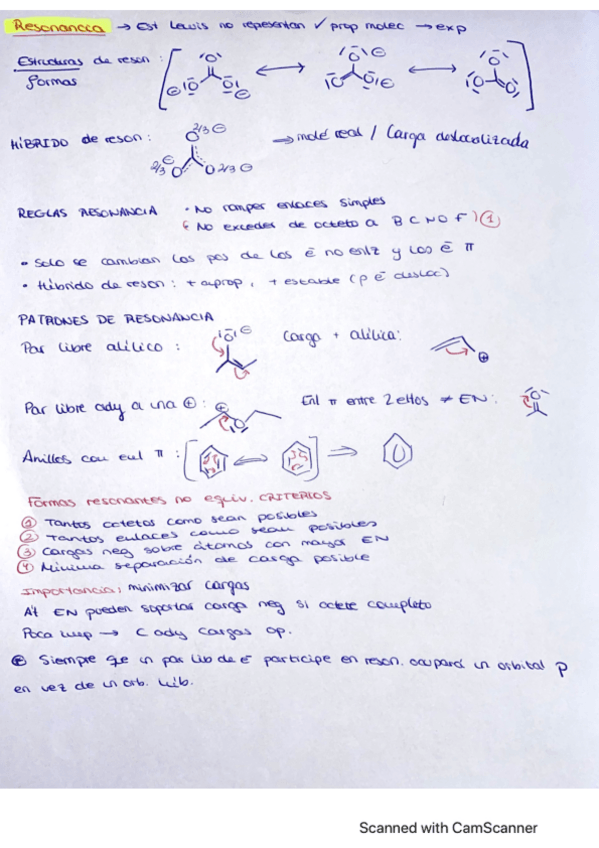 Resonancia → Est Lewis no representan ✓ prop molec → exp
Estructuras de reson :
formas
HÍBRIDO de reson : 2/3 ⊖ → molé real / Carga deslocalizada
2/3 ⊖ 2/3 ⊖
REGLAS RESONANCIA • No romper enlaces simples
No exceder de octeto a B C N O F ①
• Solo se cambian las pos de los ē no enlz y los ē π
• Híbrido de reson : + aprop, + estable (p ē desloc)
PATRONES DE RESONANCIA
Par libre alílico : Carga + alílica:
Par libre ady a una ⊕ : Enl π entre 2 eltos ≠ EN :
Anillos con enl π :
Formas resonantes no equiv. CRITERIOS
① Tantos octetos como sean posibles
② Tantos enlaces como sean posibles
③ Cargas neg sobre átomos con mayor EN
④ Mínima separación de carga posible
Importancia: minimizar cargas
At EN pueden soportar carga neg si octete completo
Poca imp → C ady cargas op.
Siempre qe un par lib de ē participe en reson. ocupará un orbital p
en vez de un orb. híb.
Scanned with CamScanner